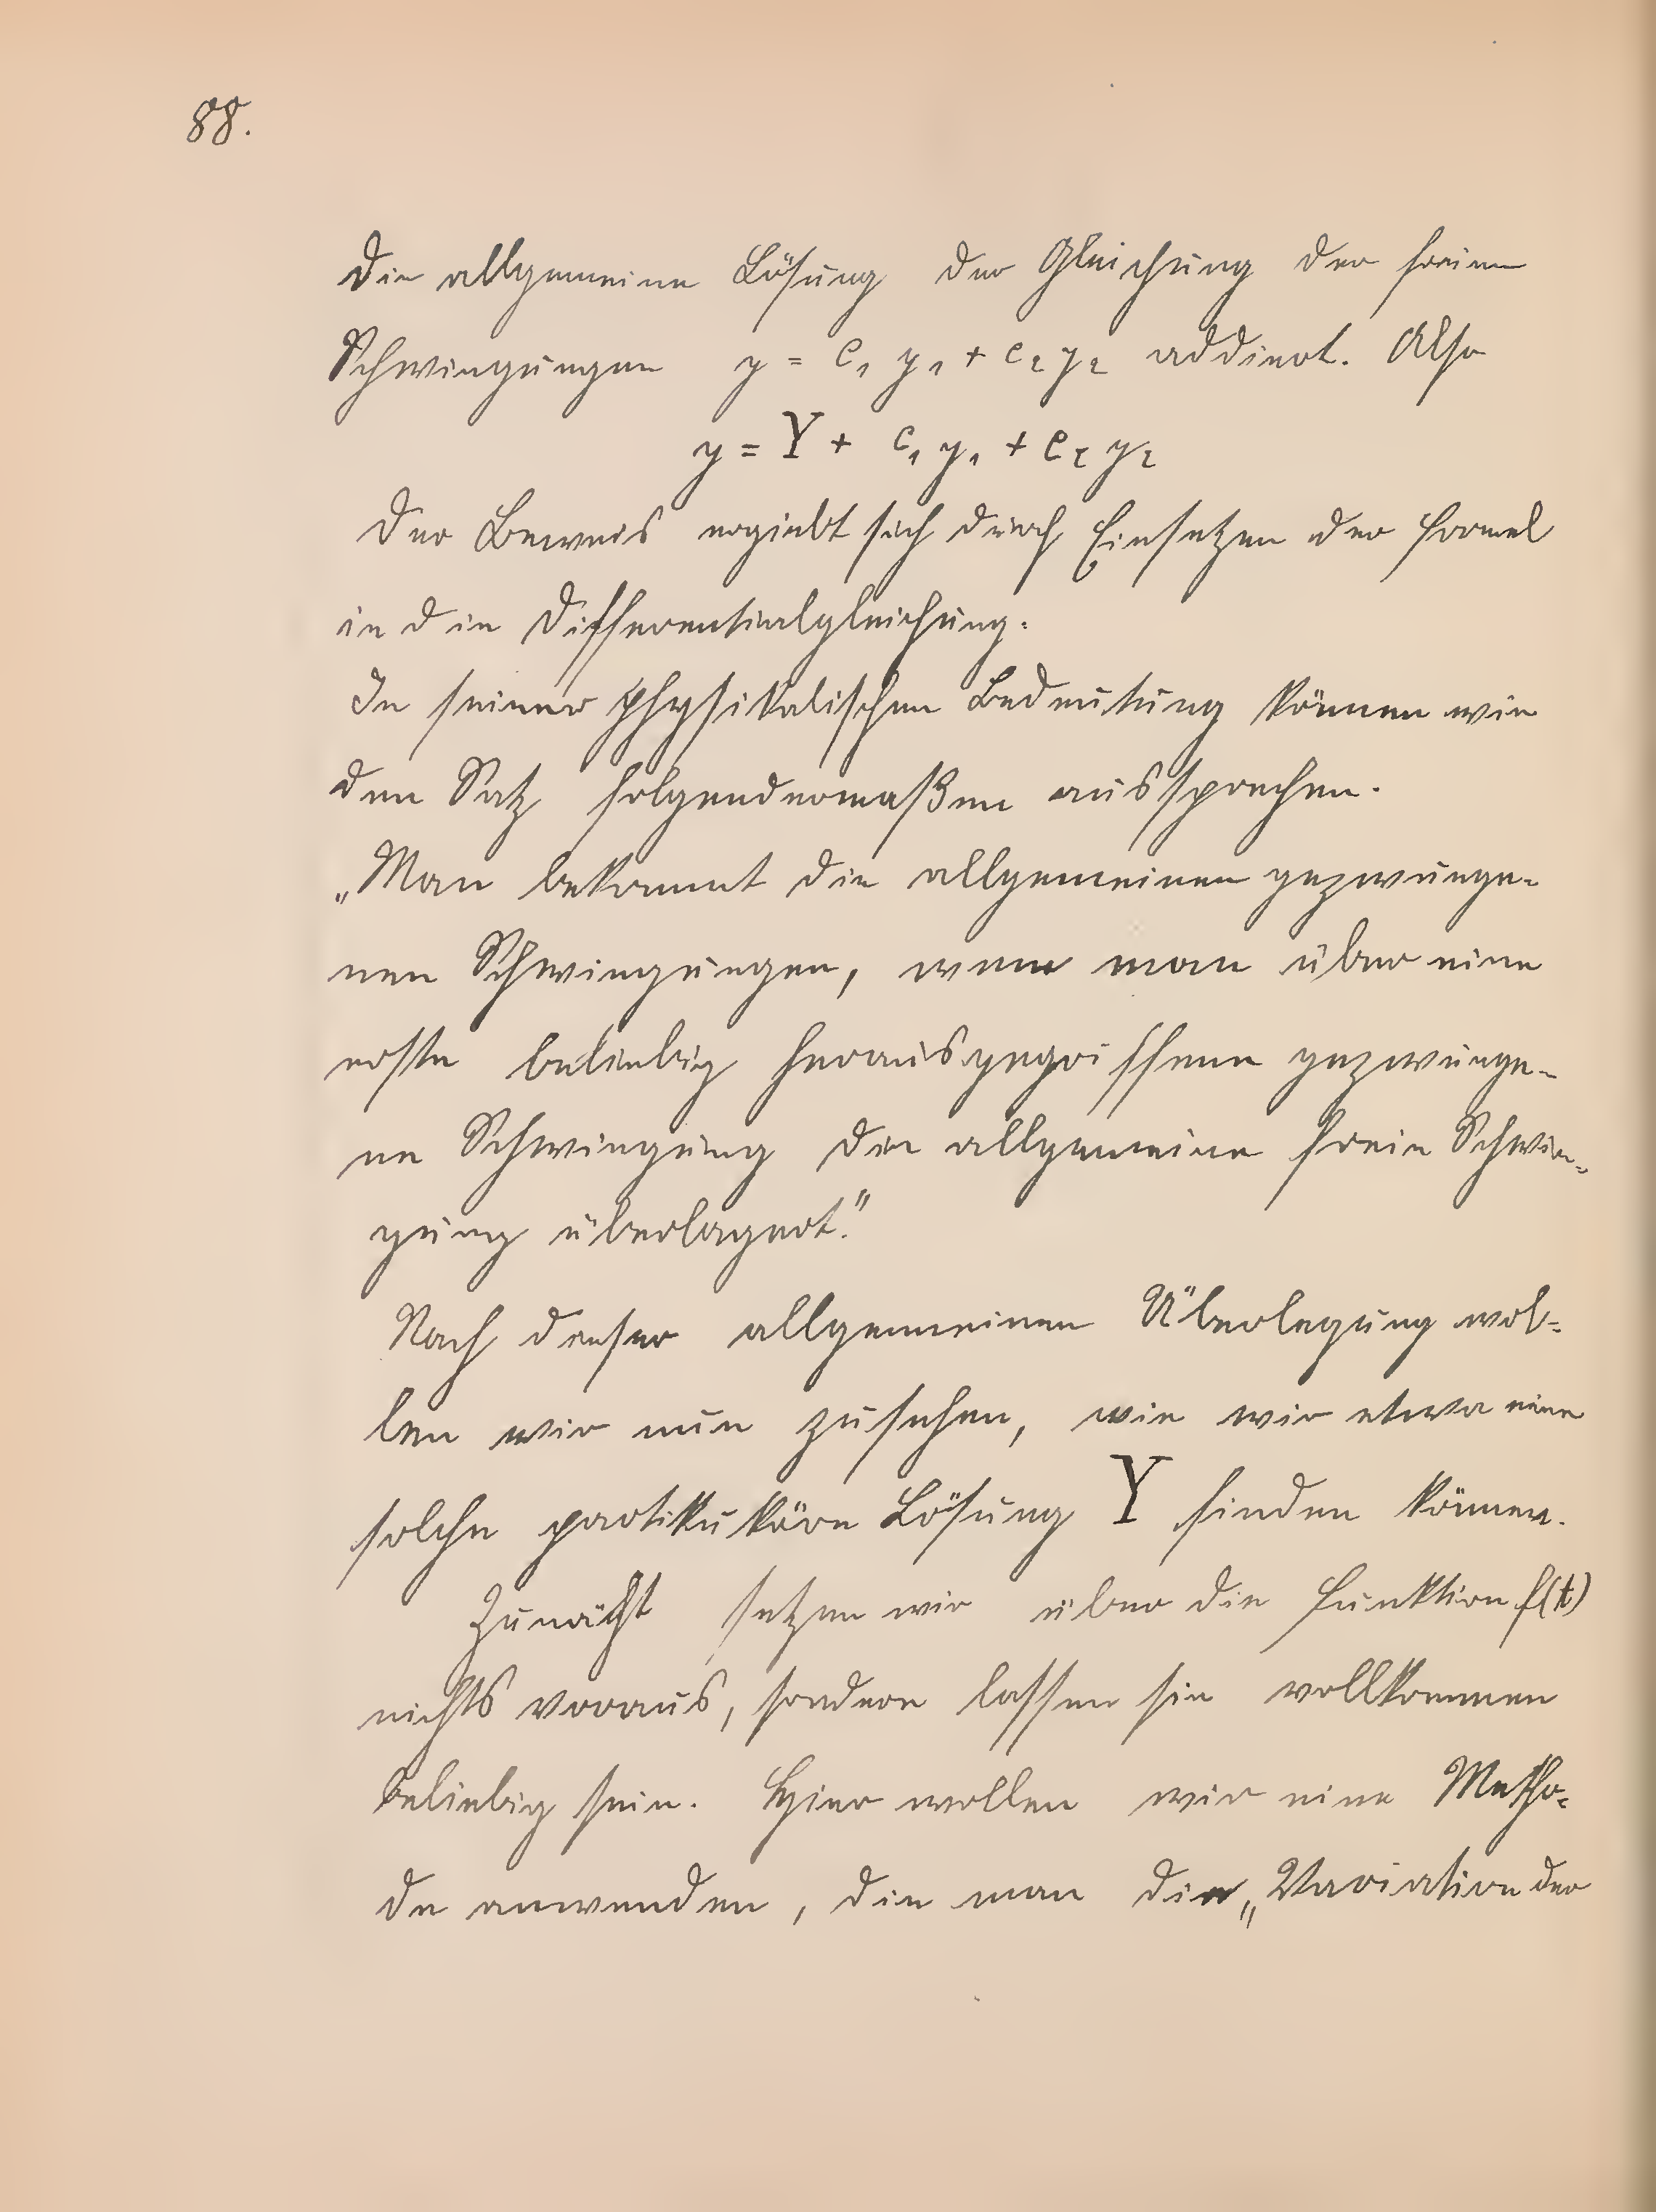 88.
die allgemeine Lösung der Gleichung der freien
Schwingungen y = c₁ y₁ + c₂ y₂ addiert. Also
y = Y + c₁ y₁ + c₂ y₂
Der Beweis ergiebt sich durch Einsetzen der Formel
in die Differentialgleichung.
In seiner physikalischen Bedeutung können wir
den Satz folgendermaßen aussprechen.
„Man bekommt die allgemeinen gezwunge-
nen Schwingungen, wenn man über eine
erste beliebig herausgegriffene gezwunge-
ne Schwingung die allgemeine freie Schwin-
gung überlagert."
Nach dieser allgemeinen Überlegung wol-
len wir nun zusehen, wie wir etwa eine
solche partikuläre Lösung Y finden können.
Zunächst setzen wir über die Funktion f(t)
nichts voraus, sondern lassen sie vollkommen
beliebig sein. Hier wollen wir eine Metho-
de anwenden, die man die „Variation der